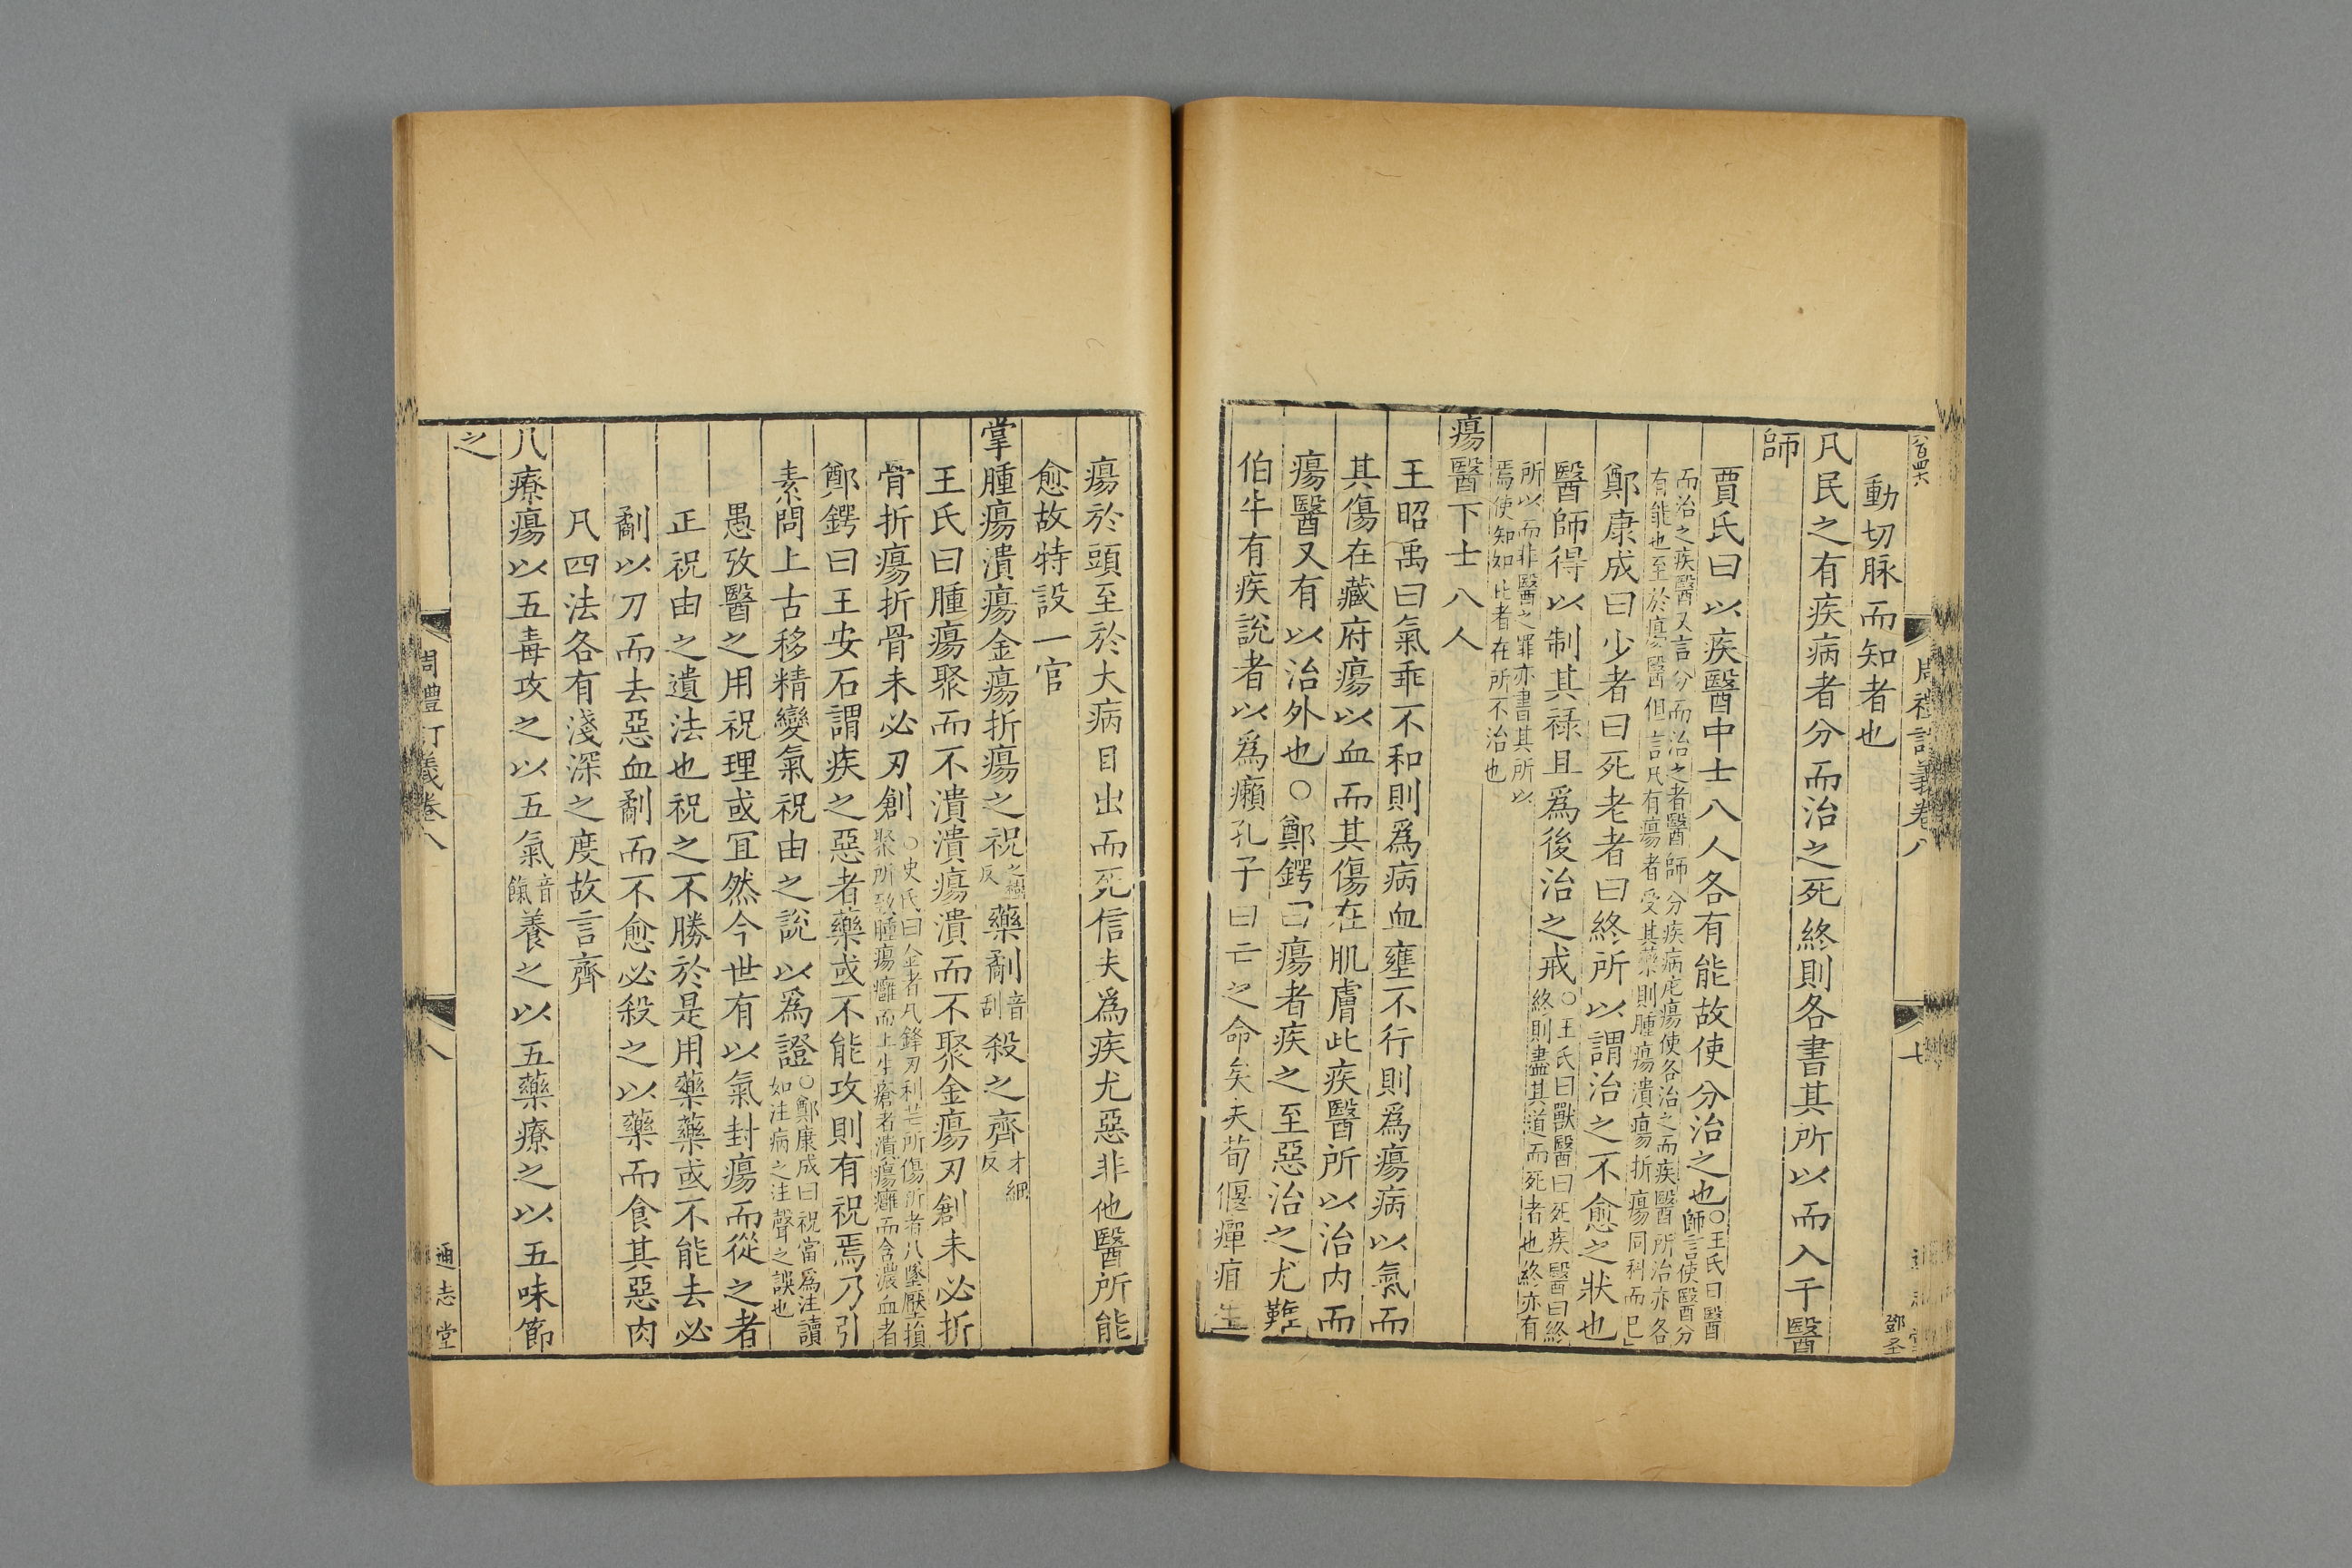 動切脉而知者也
凡民之有疾病者分而治之死終則各書其所以而入于醫
師
賈氏曰以疾醫中士八人各有能故使分治之也○王氏曰醫師言使醫分
而治之疾醫又言分而治之者醫師分疾病疕瘍使各治之而疾醫所治亦各
有能也至於瘍醫但言凡有瘍者受其藥則腫瘍潰瘍折瘍同科而已
鄭康成曰少者曰死老者曰終所以謂治之不愈之狀也
醫師得以制其祿且爲後治之戒○王氏曰獸醫曰死疾醫曰終
終則盡其道而死者也終亦有
所以而非醫之罪亦書其所以
焉使知如此者在所不治也
瘍醫下士八人
王昭禹曰氣乖不和則爲病血壅不行則爲瘍病以氣而
其傷在藏府瘍以血而其傷在肌膚此疾醫所以治内而
瘍醫又有以治外也○鄭鍔曰瘍者疾之至惡治之尤難
伯牛有疾說者以爲癩孔子曰亡之命矣夫荀偃癉疽生
瘍於頭至於大病目出而死信夫爲疾尤惡非他醫所能
愈故特設一官
掌腫瘍潰瘍金瘍折瘍之祝之樹反藥劀音刮殺之齊才細反
王氏曰腫瘍聚而不潰潰瘍潰而不聚金瘍刃創未必折
骨折瘍折骨未必刃創○史氏曰金者凡鋒刃利芒所傷折者凡墜壓損
聚所致腫瘍癰而上生瘡者潰瘍癰而含濃血者
鄭鍔曰王安石謂疾之惡者藥或不能攻則有祝焉乃引
素問上古移精變氣祝由之說以爲證○鄭康成曰祝當爲注讀
如注病之注聲之誤也
愚攷醫之用祝理或冝然今世有以氣封瘍而從之者
正祝由之遺法也祝之不勝於是用藥藥或不能去必
劀以刀而去惡血劀而不愈必殺之以藥而食其惡肉
凡四法各有淺深之度故言齊
凡療瘍以五毒攻之以五氣音餼養之以五藥療之以五味節
之
周禮訂義卷八
八
通志堂
周禮訂義卷八
七
鄧圣